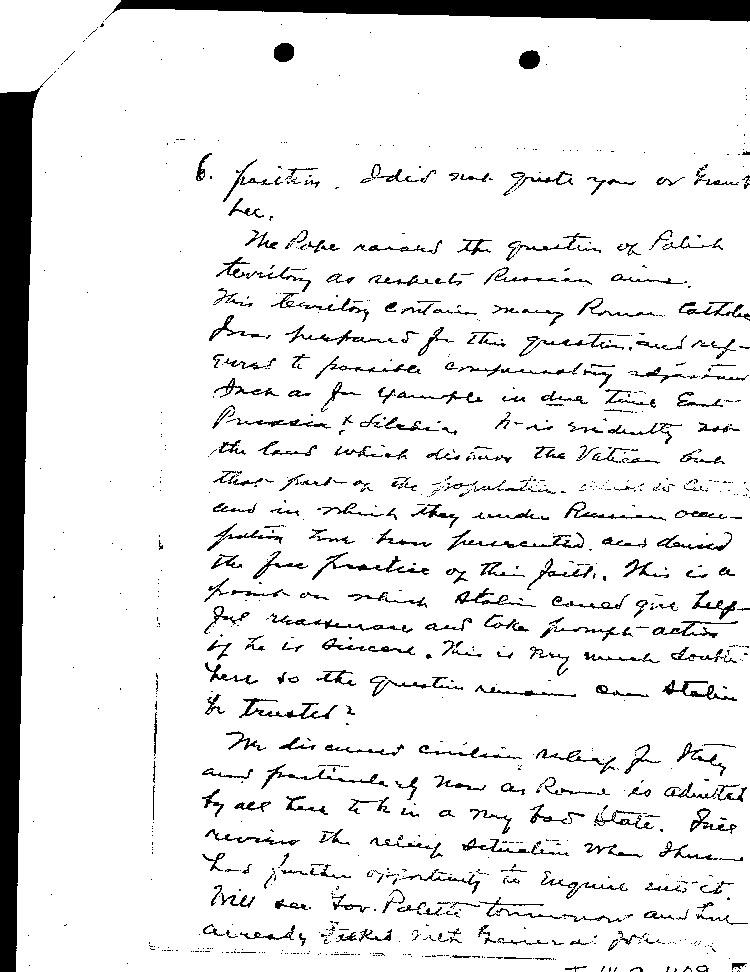 6. position. I did not quote you or Grant
her.
The Pope raised the question of Polish
territory as respects Russian aims.
This territory contains many Roman Catholic
I was prepared for this question, and ref-
erred to possible compensatory adjustment
Such as for example in due time East
Prussia & Silesia. It is evidently not
the land which disturbs the Vatican but
that part of the population
and in which they under Russian occu-
pation have been persecuted and denied
the free practice of their faith. This is a
point on which Stalin could give help-
ful reassurance and take prompt action
if he is sincere. This is very much doubted
here so the question remains can Stalin
be trusted?
We discussed civilian relief for Italy
and particularly now as Rome is admitted
by all here to be in a very bad State. I will
review the relief situation when I have
had further opportunity to enquire into it.
Will see Gov. Poletti tomorrow and have
already talked with General